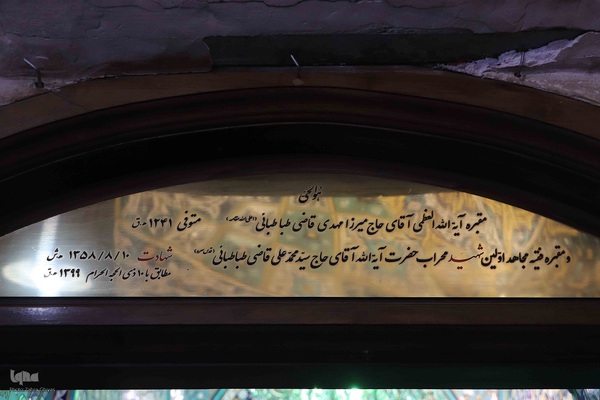 هوالحی
مقبره آیة الله العظمی آقای حاج میرزا مهدی قاضی طباطبائی متوفی ۱۲۴۱ ه‍.ق
و مقبره فقیه مجاهد اولین شهید محراب حضرت آیة الله آقای حاج سید محمد علی قاضی طباطبائی شهادت ۱۳۵۸/۸/۱۰ ه‍.ش
مطابق با ۱۰ ذی الحجة الحرام ۱۳۹۹ ه‍.ق